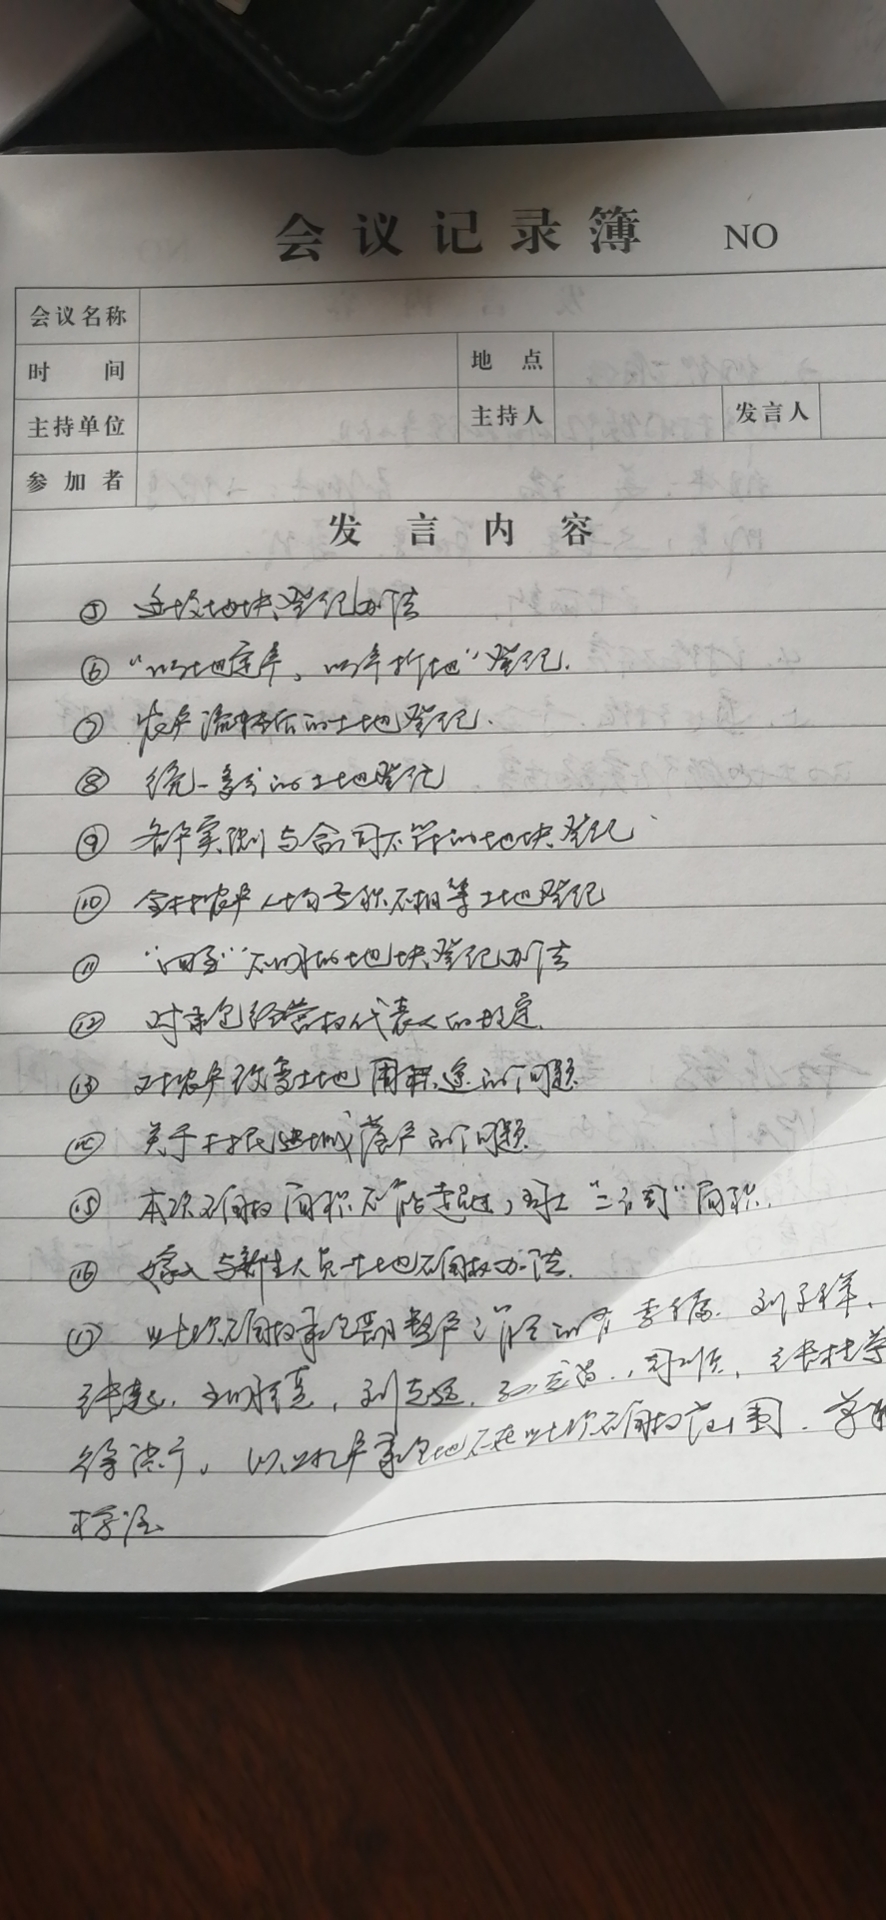 会议记录簿 NO
会议名称
时 间 地 点
主持单位 主持人 发言人
参加者
发言内容
⑤ 地块登记办法
⑥ “以地定产、以产折地”登记.
⑦ 农户流转后的土地登记.
⑧ 统一 的土地登记
⑨ 各户实测与合同不符的地块登记
⑩ 全村农户人均面积不相等土地登记
⑪ “四至”不明的地块登记办法
⑫ 对承包经营权代表人的确定.
⑬ 对农户改变土地用途的问题
⑭ 关于村民进城落户的问题
⑮ 本次确权面积不能超过 “二合同”面积.
⑯ 嫁入与新生人员土地确权办法.
⑰ 此次确权承包期整户消亡的有李 . 刘 .
刘 . . . 
徐洪 . 以上 户承包地不在此次确权范围.